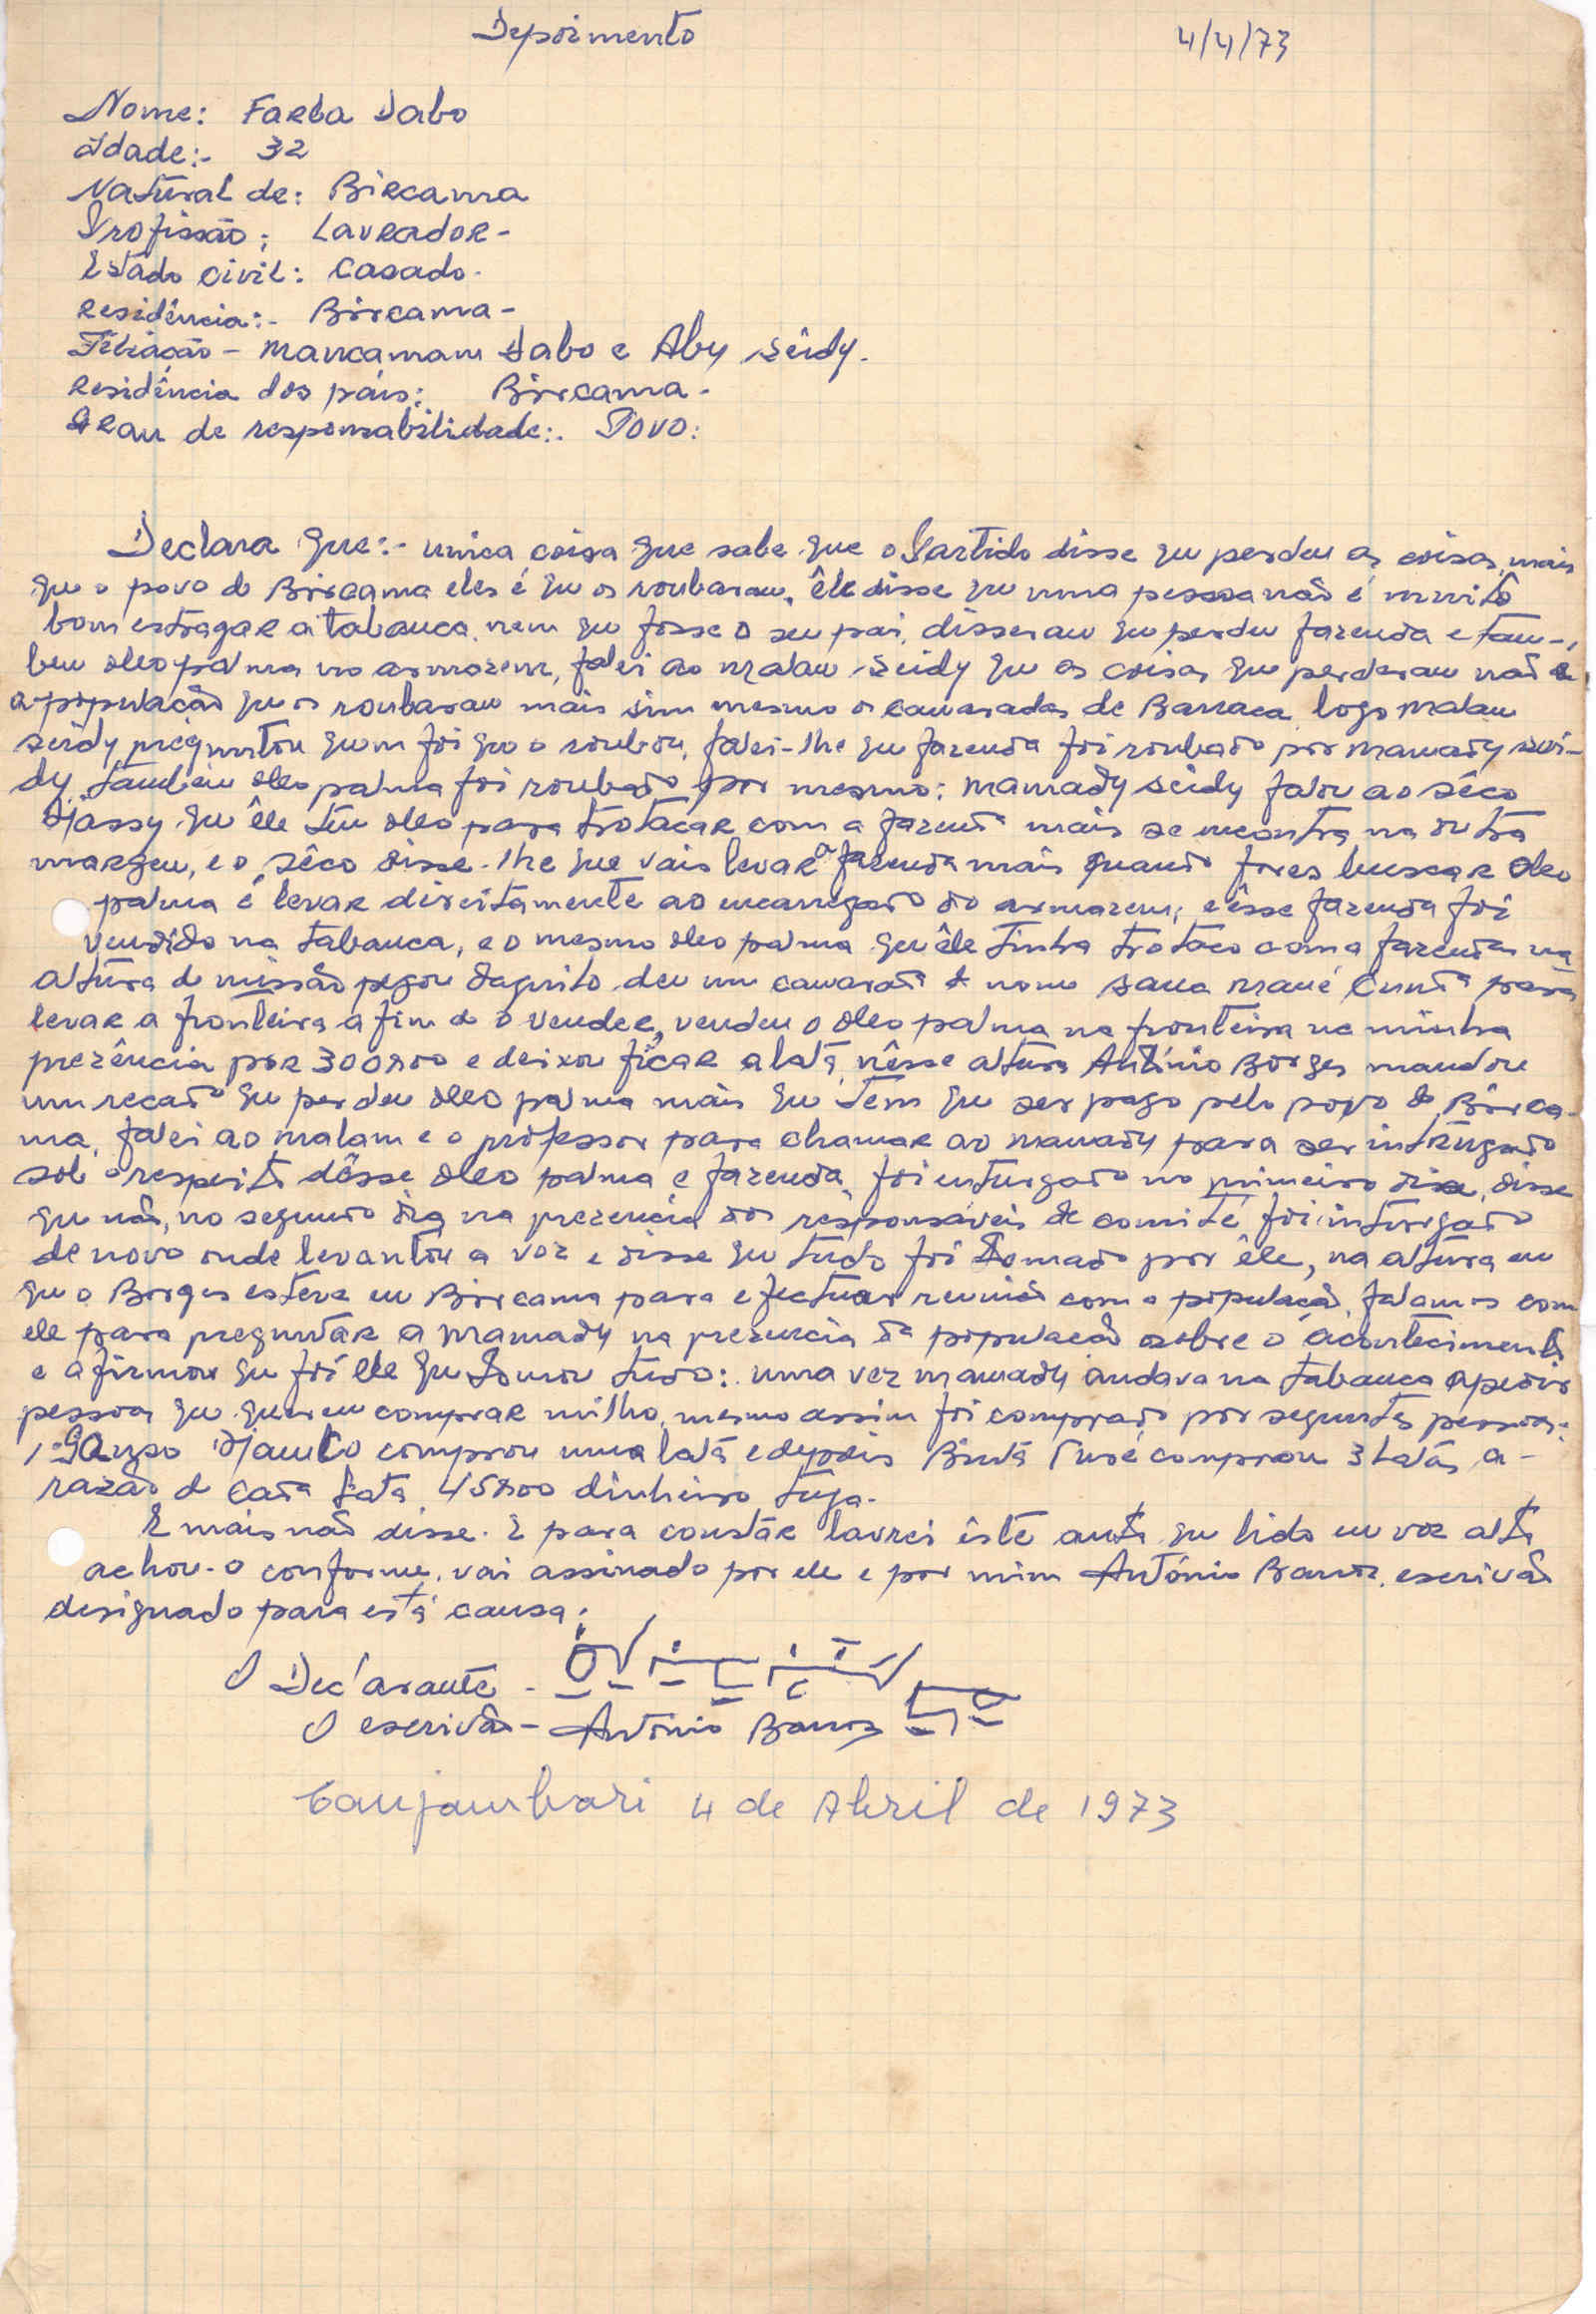 Depoimento 4/4/73
Nome: Farba Dabo
Idade:- 32
Natural de: Bircama
Profissão: Lavrador-
Estado civil: Casado.
Residência:- Bircama-
Filiação - Mancamam Dabo e Aby seidy.
Residência dos pais: Bircama-
Grau de responsabilidade:. Povo:
Declara que:- unica coisa que sabe que o Partido disse qu perdeu as coisas, mais
qu o povo de Bircama eles é qu os roubaram, êle disse qu uma pessoa não é muito
bom estragar a tabanca nem qu fosse o seu pai, disseram qu perdeu fazenda e tam-
bem oleo palma no armazem, falei ao Malam Seidy qu as coisas qu perderam não é
a população qu os roubaram mais sim mesmo os camaradas de Barraca logo Malam
seidy preguntou quem foi que o roubou, falei-lhe qu fazenda foi roubado por Mamady sei-
dy, tambem oleo palma foi roubado por mesmo: Mamady seidy falou ao Sêco
Djassy qu êle tem oleo para trotacar com a fazenda mais se incontra na outra
margem, e o Sêco disse-lhe que vais levar a fazenda mais quando fores buscar oleo
palma é levar direitamente ao encarregado do armazem, e êsse fazenda foi
vendido na tabanca, e o mesmo oleo palma qu êle tinha trotaco com a fazenda na
altura de missão pegou daquilo deu um camarada de nome Sana Mané Cunda para
levar a fronteira a fim de o vender, vendeu o oleo palma na fronteira na minha
prezência por 300$00 e deixou ficar a lata, nêsse altura António Borges mandou
um recado qu perdeu oleo palma mais qu tem qu ser pago pelo povo de Birca-
ma, falei ao malam e o professor para chamar ao mamady para ser intergado
sob o respeito dêsse oleo palma e fazenda, foi intergado no primeiro dia, disse
qu não, no segundo dia na prezencia dos responsáveis de comité foi intorgado
de novo onde levantou a voz e disse qu tudo foi tomado por êle, na altura em
qu o Borges esteve em Bircama para efectuar reunião com a população, falamos com
ele para preguntar a Mamady na prezencia da população sobre o acontecimento
e afirmou qu foi ele qu tomou tudo: uma vez mamady andava na tabanca apedir
pessoas qu querem comprar milho, mesmo assim foi comprado por seguintes pessoas:
comprou uma lata e depois Bintá Turé comprou 3 latas a-
razão de cada lata 45$00 dinheiro tuga.
E mais não disse. E para constar lavrei êste auto qu lido em voz alta
achou-o conforme, vai assinado por ele e por mim António Barros, escrivão
designado para está causa:
O Declarante -
O escrivão - António Barros
Canjambari 4 de Abril de 1973